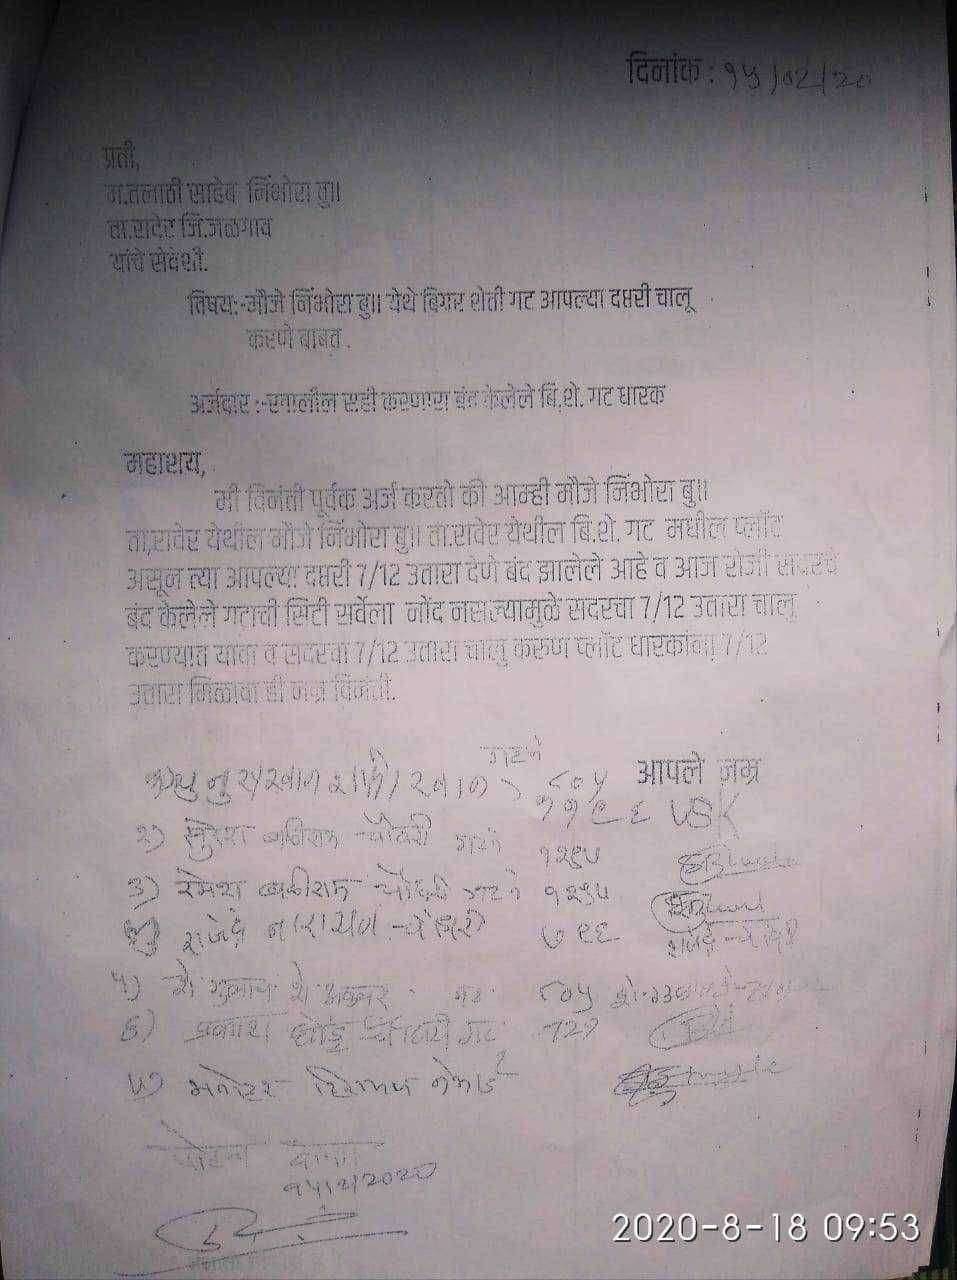 दिनांक : १५/०२/२०
प्रती,
म.तलाठी साहेब निंभोरा बु॥
ता.रावेर जि.जळगाव
यांचे सेवेशी.
विषय:-मौजे निंभोरा बु॥ येथे बिगर शेती गट आपल्या दप्तरी चालू
करणे बाबत .
अर्जदार :-खालील सही करणारा बंद केलेले बि.शे. गट धारक
महाशय,
मी विनंती पूर्वक अर्ज करतो की आम्ही मौजे निंभोरा बु॥
ता.रावेर येथील मौजे निंभोरा बु॥ ता.रावेर येथील बि.शे. गट मधील प्लॉट
असून त्या आपल्या दप्तरी 7/12 उतारा देणे बंद झालेले आहे व आज रोजी सदरचे
बंद केलेले गटाची सिटी सर्वेला नोंद नसल्यामुळे सदरचा 7/12 उतारा चालु
करण्यात यावा व सदरचा 7/12 उतारा चालु करुण प्लॉट धारकांना 7/12
उतारा मिळावा ही नम्र विनंती.
गट नं ८०५ आपले नम्र
११९६ VSK
२) सुरेश चौधरी गट नं १२९५
३) रमेश बळीराम चौधरी गट नं १२९५
राजेंद्र नारायण चौधरी ७९६
५) ८०५
६) प्रकाश धोंडू चौधरी गट 729
१५/२/2020
2020-8-18 09:53